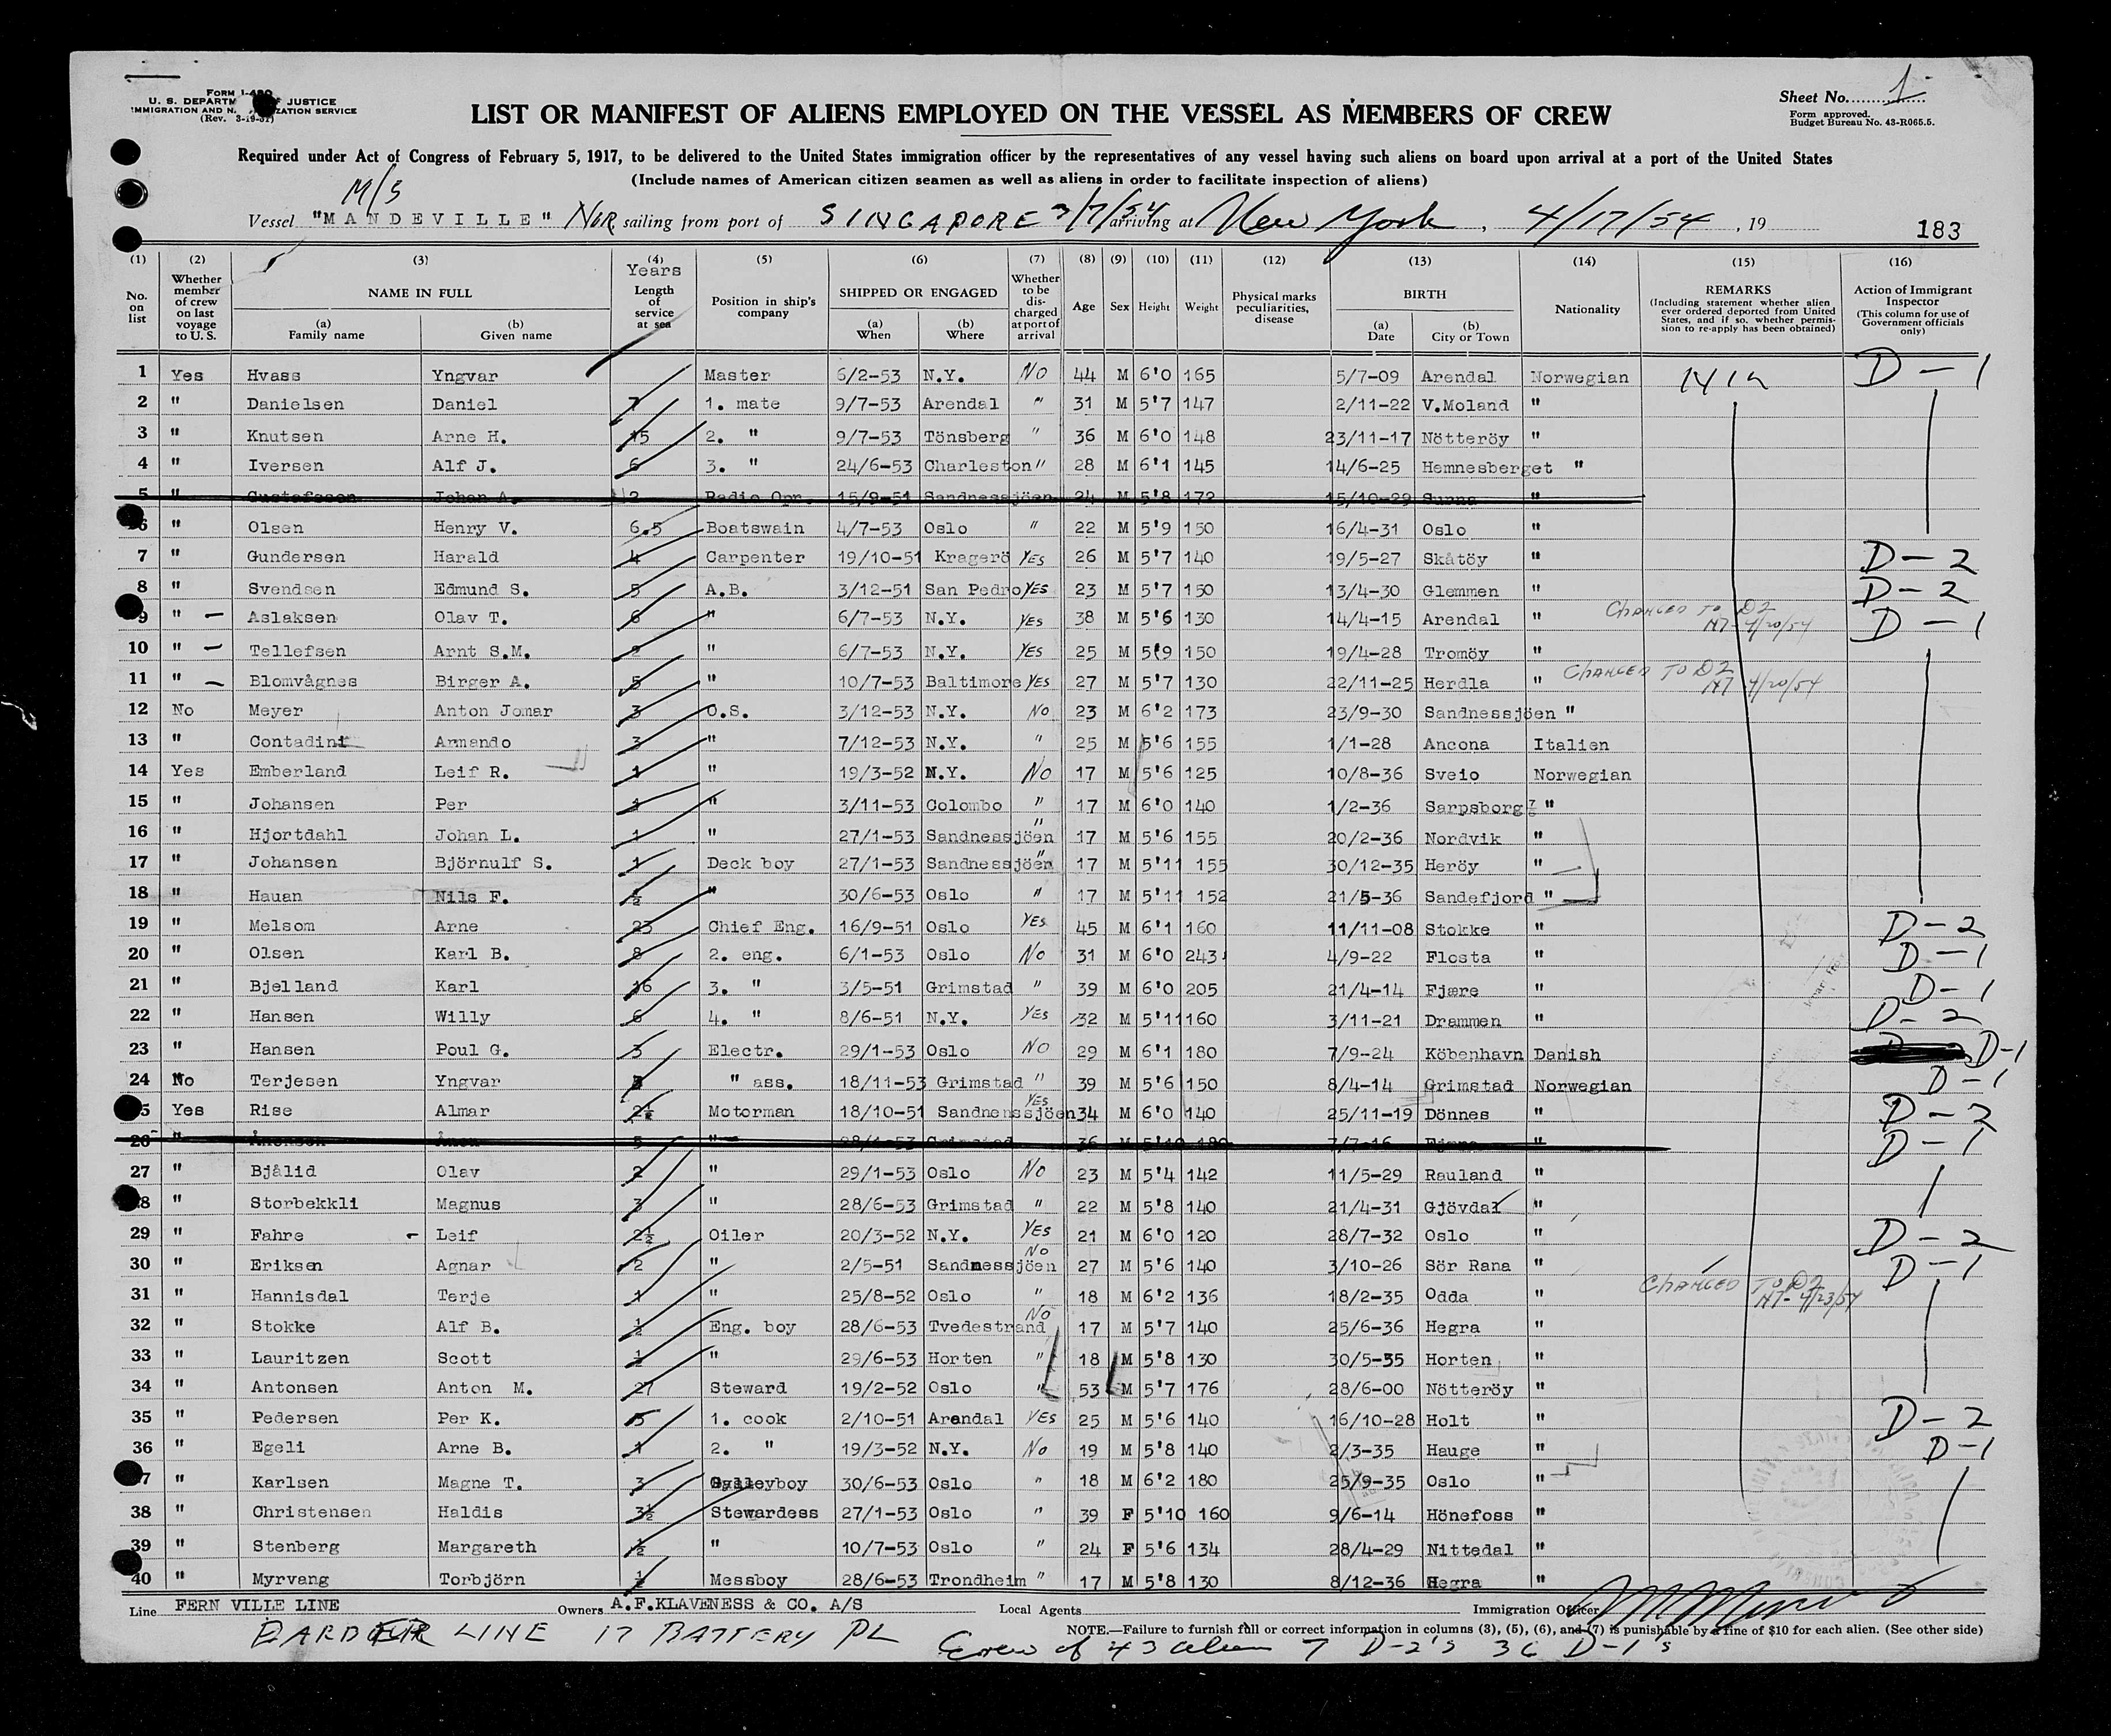 Form I-480
U. S. DEPARTM JUSTICE
IMMIGRATION AND N ZATION SERVICE
(Rev. 3-19-51)
Sheet No. 1
Form approved.
Budget Bureau No. 43-R065.5.
LIST OR MANIFEST OF ALIENS EMPLOYED ON THE VESSEL AS MEMBERS OF CREW
Required under Act of Congress of February 5, 1917, to be delivered to the United States immigration officer by the representatives of any vessel having such aliens on board upon arrival at a port of the United States
(Include names of American citizen seamen as well as aliens in order to facilitate inspection of aliens)
M/S
Vessel "MANDEVILLE" NOR. sailing from port of SINGAPORE 3/7/54 arriving at New York, 4/17/54, 19 183
(1) (2) (3) (4) (5) (6) (7) (8) (9) (10) (11) (12) (13) (14) (15) (16)
No. on list
Whether member of crew on last voyage to U. S.
NAME IN FULL
(a) Family name
(b) Given name
Years
Length of service at sea
Position in ship's company
SHIPPED OR ENGAGED
(a) When
(b) Where
Whether to be discharged at port of arrival
Age
Sex
Height
Weight
Physical marks peculiarities, disease
BIRTH
(a) Date
(b) City or Town
Nationality
REMARKS
(Including statement whether alien ever ordered deported from United States, and if so, whether permission to re-apply has been obtained)
Action of Immigrant Inspector
(This column for use of Government officials only)
1 Yes Hvass Yngvar Master 6/2-53 N.Y. NO 44 M 6'0 165 5/7-09 Arendal Norwegian D-1
2 " Danielsen Daniel 7 1. mate 9/7-53 Arendal " 31 M 5'7 147 2/11-22 V.Moland "
3 " Knutsen Arne H. 15 2. " 9/7-53 Tönsberg " 36 M 6'0 148 23/11-17 Nötteröy "
4 " Iversen Alf J. 6 3. " 24/6-53 Charleston " 28 M 6'1 145 14/6-25 Hemnesberget "
5 " Gustafsson Johan A. 2 Radio Opr. 15/9-51 Sandnessjöen 24 M 5'8 172 15/10-29 "
6 " Olsen Henry V. 6.5 Boatswain 4/7-53 Oslo " 22 M 5'9 150 16/4-31 Oslo "
7 " Gundersen Harald 4 Carpenter 19/10-51 Kragerö YES 26 M 5'7 140 19/5-27 Skåtöy " D-2
8 " Svendsen Edmund S. 5 A.B. 3/12-51 San Pedro YES 23 M 5'7 150 13/4-30 Glemmen " D-2
9 " - Aslaksen Olav T. 6 " 6/7-53 N.Y. YES 38 M 5'6 130 14/4-15 Arendal " CHANGED TO D2 4/20/54 D-1
10 " - Tellefsen Arnt S.M. 2 " 6/7-53 N.Y. YES 25 M 5'9 150 19/4-28 Tromöy "
11 " - Blomvågnes Birger A. 5 " 10/7-53 Baltimore YES 27 M 5'7 130 22/11-25 Herdla " CHANGED TO D2 4/20/54
12 No Meyer Anton Jomar 3 O.S. 3/12-53 N.Y. NO 23 M 6'2 173 23/9-30 Sandnessjöen "
13 " Contadini Armando 3 " 7/12-53 N.Y. " 25 M 5'6 155 1/1-28 Ancona Italien
14 Yes Emberland Leif R. 1 " 19/3-52 N.Y. NO 17 M 5'6 125 10/8-36 Sveio Norwegian
15 " Johansen Per 1 " 3/11-53 Colombo " 17 M 6'0 140 1/2-36 Sarpsborg "
16 " Hjortdahl Johan L. 1 " 27/1-53 Sandnessjöen " 17 M 5'6 155 20/2-36 Nordvik "
17 " Johansen Björnulf S. 1 Deck boy 27/1-53 Sandnessjöen " 17 M 5'11 155 30/12-35 Heröy "
18 " Hauan Nils F. ½ " 30/6-53 Oslo " 17 M 5'11 152 21/5-36 Sandefjord "
19 " Melsom Arne 23 Chief Eng. 16/9-51 Oslo YES 45 M 6'1 160 11/11-08 Stokke " D-2
20 " Olsen Karl B. 8 2. eng. 6/1-53 Oslo NO 31 M 6'0 243 4/9-22 Flosta " D-1
21 " Bjelland Karl 16 3. " 3/5-51 Grimstad " 39 M 6'0 205 21/4-14 Fjære " D-1
22 " Hansen Willy 6 4. " 8/6-51 N.Y. YES 32 M 5'11 160 3/11-21 Drammen " D-2
23 " Hansen Poul G. 3 Electr. 29/1-53 Oslo NO 29 M 6'1 180 7/9-24 Köbenhavn Danish D-1
24 No Terjesen Yngvar " ass. 18/11-53 Grimstad " 39 M 5'6 150 8/4-14 Grimstad Norwegian D-1
25 Yes Rise Almar 2½ Motorman 18/10-51 Sandnenssjöen YES 34 M 6'0 140 25/11-19 Dönnes " D-2
26 " 5 " Grimstad 36 M 5'10 180 7/7-16 " D-1
27 " Bjålid Olav 2 " 29/1-53 Oslo NO 23 M 5'4 142 11/5-29 Rauland "
28 " Storbekkli Magnus 3 " 28/6-53 Grimstad " 22 M 5'8 140 21/4-31 Gjövdal "
29 " Fahre - Leif 2½ Oiler 20/3-52 N.Y. YES 21 M 6'0 120 28/7-32 Oslo " D-2
30 " Eriksen Agnar 2 " 2/5-51 Sandnessjöen NO 27 M 5'6 140 3/10-26 Sör Rana " D-1
31 " Hannisdal Terje 1 " 25/8-52 Oslo " 18 M 6'2 136 18/2-35 Odda " CHANGED TO D2 4/23/54
32 " Stokke Alf B. ½ Eng. boy 28/6-53 Tvedestrand NO 17 M 5'7 140 25/6-36 Hegra "
33 " Lauritzen Scott ½ " 29/6-53 Horten " 18 M 5'8 130 30/5-35 Horten "
34 " Antonsen Anton M. 27 Steward 19/2-52 Oslo " 53 M 5'7 176 28/6-00 Nötteröy "
35 " Pedersen Per K. 5 1. cook 2/10-51 Arendal YES 25 M 5'6 140 16/10-28 Holt " D-2
36 " Egeli Arne B. 1 2. " 19/3-52 N.Y. NO 19 M 5'8 140 2/3-35 Hauge " D-1
37 " Karlsen Magne T. 3 Galleyboy 30/6-53 Oslo " 18 M 6'2 180 25/9-35 Oslo "
38 " Christensen Haldis 3½ Stewardess 27/1-53 Oslo " 39 F 5'10 160 9/6-14 Hönefoss "
39 " Stenberg Margareth ½ " 10/7-53 Oslo " 24 F 5'6 134 28/4-29 Nittedal "
40 " Myrvang Torbjörn ½ Messboy 28/6-53 Trondheim " 17 M 5'8 130 8/12-36 Hegra "
Line FERN VILLE LINE Owners A.F.KLAVENESS & CO. A/S Local Agents Immigration Officer
BARBER LINE 17 BATTERY PL
NOTE.—Failure to furnish full or correct information in columns (3), (5), (6), and (7) is punishable by a fine of $10 for each alien. (See other side)
Crew of 43 alien 7 D-2's 36 D-1's